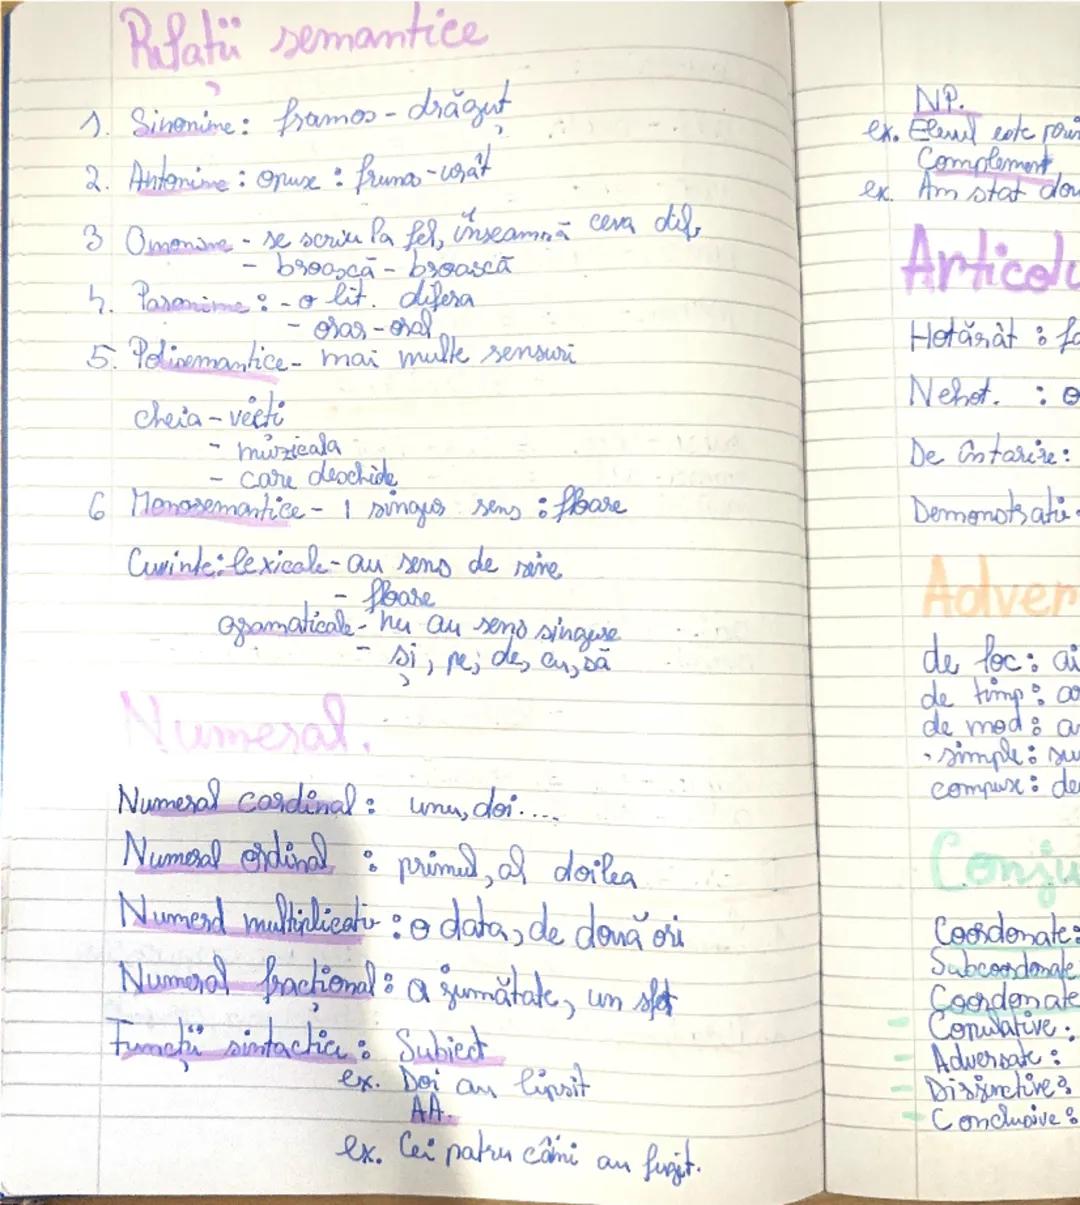 Relații semantice
1. Sinonime: frumos - drăguț
2. Antonime: opuse: frumos - urât
3 Omonime - se scriu la fel, înseamnă ceva dif.
- broască - broască
4. Paronime: - o lit. difera
- orar - oral
5. Polisemantice - mai multe sensuri
cheia - vieții
- muzicala
- care deschide
6 Monosemantice - 1 singur sens: floare
Cuvinte: lexicale - au sens de sine
- floare
gramaticale - nu au sens singure
- și, pe, de, cu, să
Numeral.
Numeral cardinal: unu, doi....
Numeral ordinal: primul, al doilea
Numeral multiplicativ: o data, de două ori
Numeral fracțional: a jumătate, un sfert
Funcții sintactice: Subiect
ex. Doi au lipsit
AA.
ex. Cei patru câini au fugit.
NP.
ex. Elevul este
Complement
ex. Am stat
Hotărât:
Nehot. : o
De întarire:
de loc:
de timp:
de mod:
- simple:
compuse:
Coordonate:
Subcoordonate
Coordonate
- Copulative:
- Adversate:
- Disjunctive:
- Conclusive: